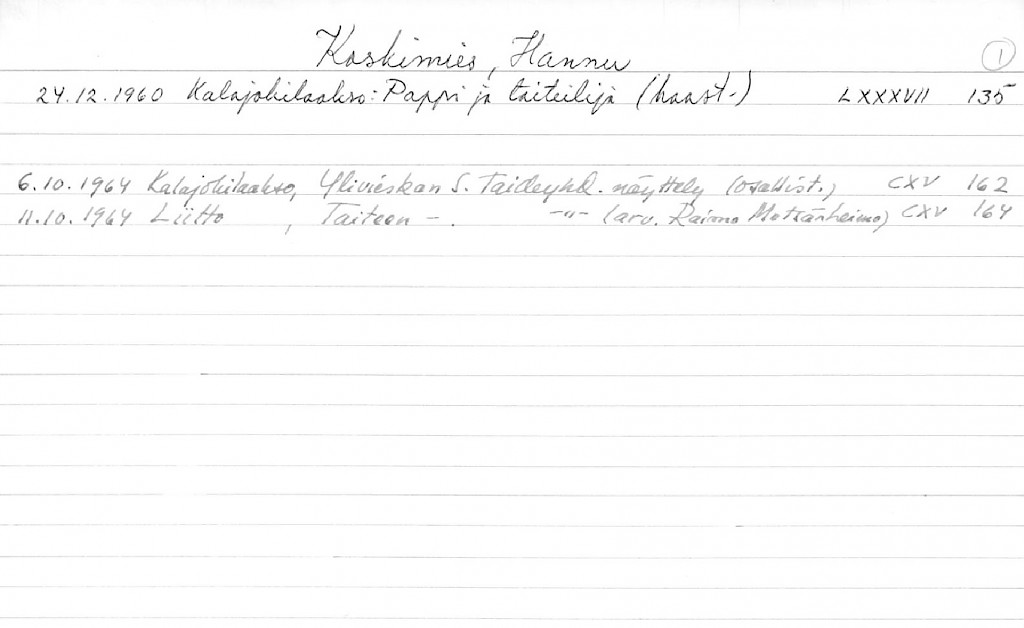 Koskimies, Hannu 1
24.12.1960 Kalajokilaakso: Pappi ja taiteilija (haast.) LXXXVII 135
6.10.1964 Kalajokilaakso, Ylivieskan S. Taideyhd. näyttely (osallist.) CXV 162
11.10.1964 Liitto , Taiteen - . -"- (arv. Raimo Metsänheimo) CXV 164